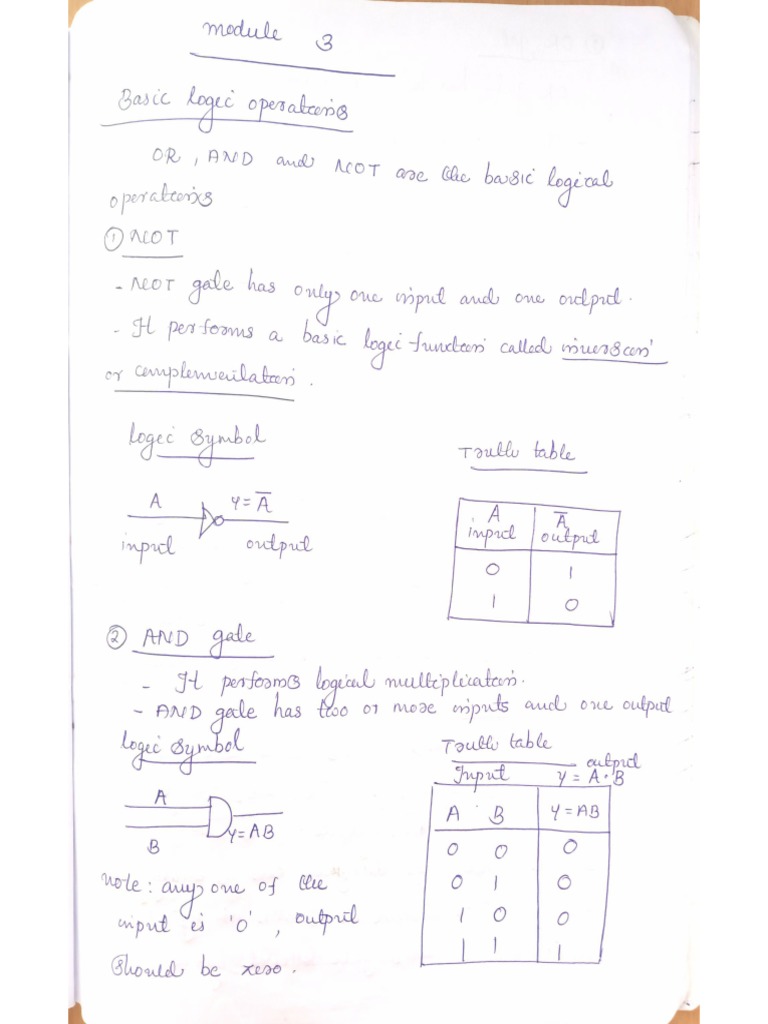 module 3
Basic logic operations
OR, AND and NOT are the basic logical
operations
① NOT
- NOT gate has only one input and one output.
- It performs a basic logic function called inversion
or complementation.
logic symbol
Truth table
A Y = A̅
input output
A A̅
input output
0 1
1 0
② AND gate
- It performs logical multiplication.
- AND gate has two or more inputs and one output
logic symbol
Truth table
Input output
Y = A·B
A
B
Y=AB
A B Y=AB
0 0 0
0 1 0
1 0 0
1 1 1
note: any one of the
input is '0', output
should be zero.